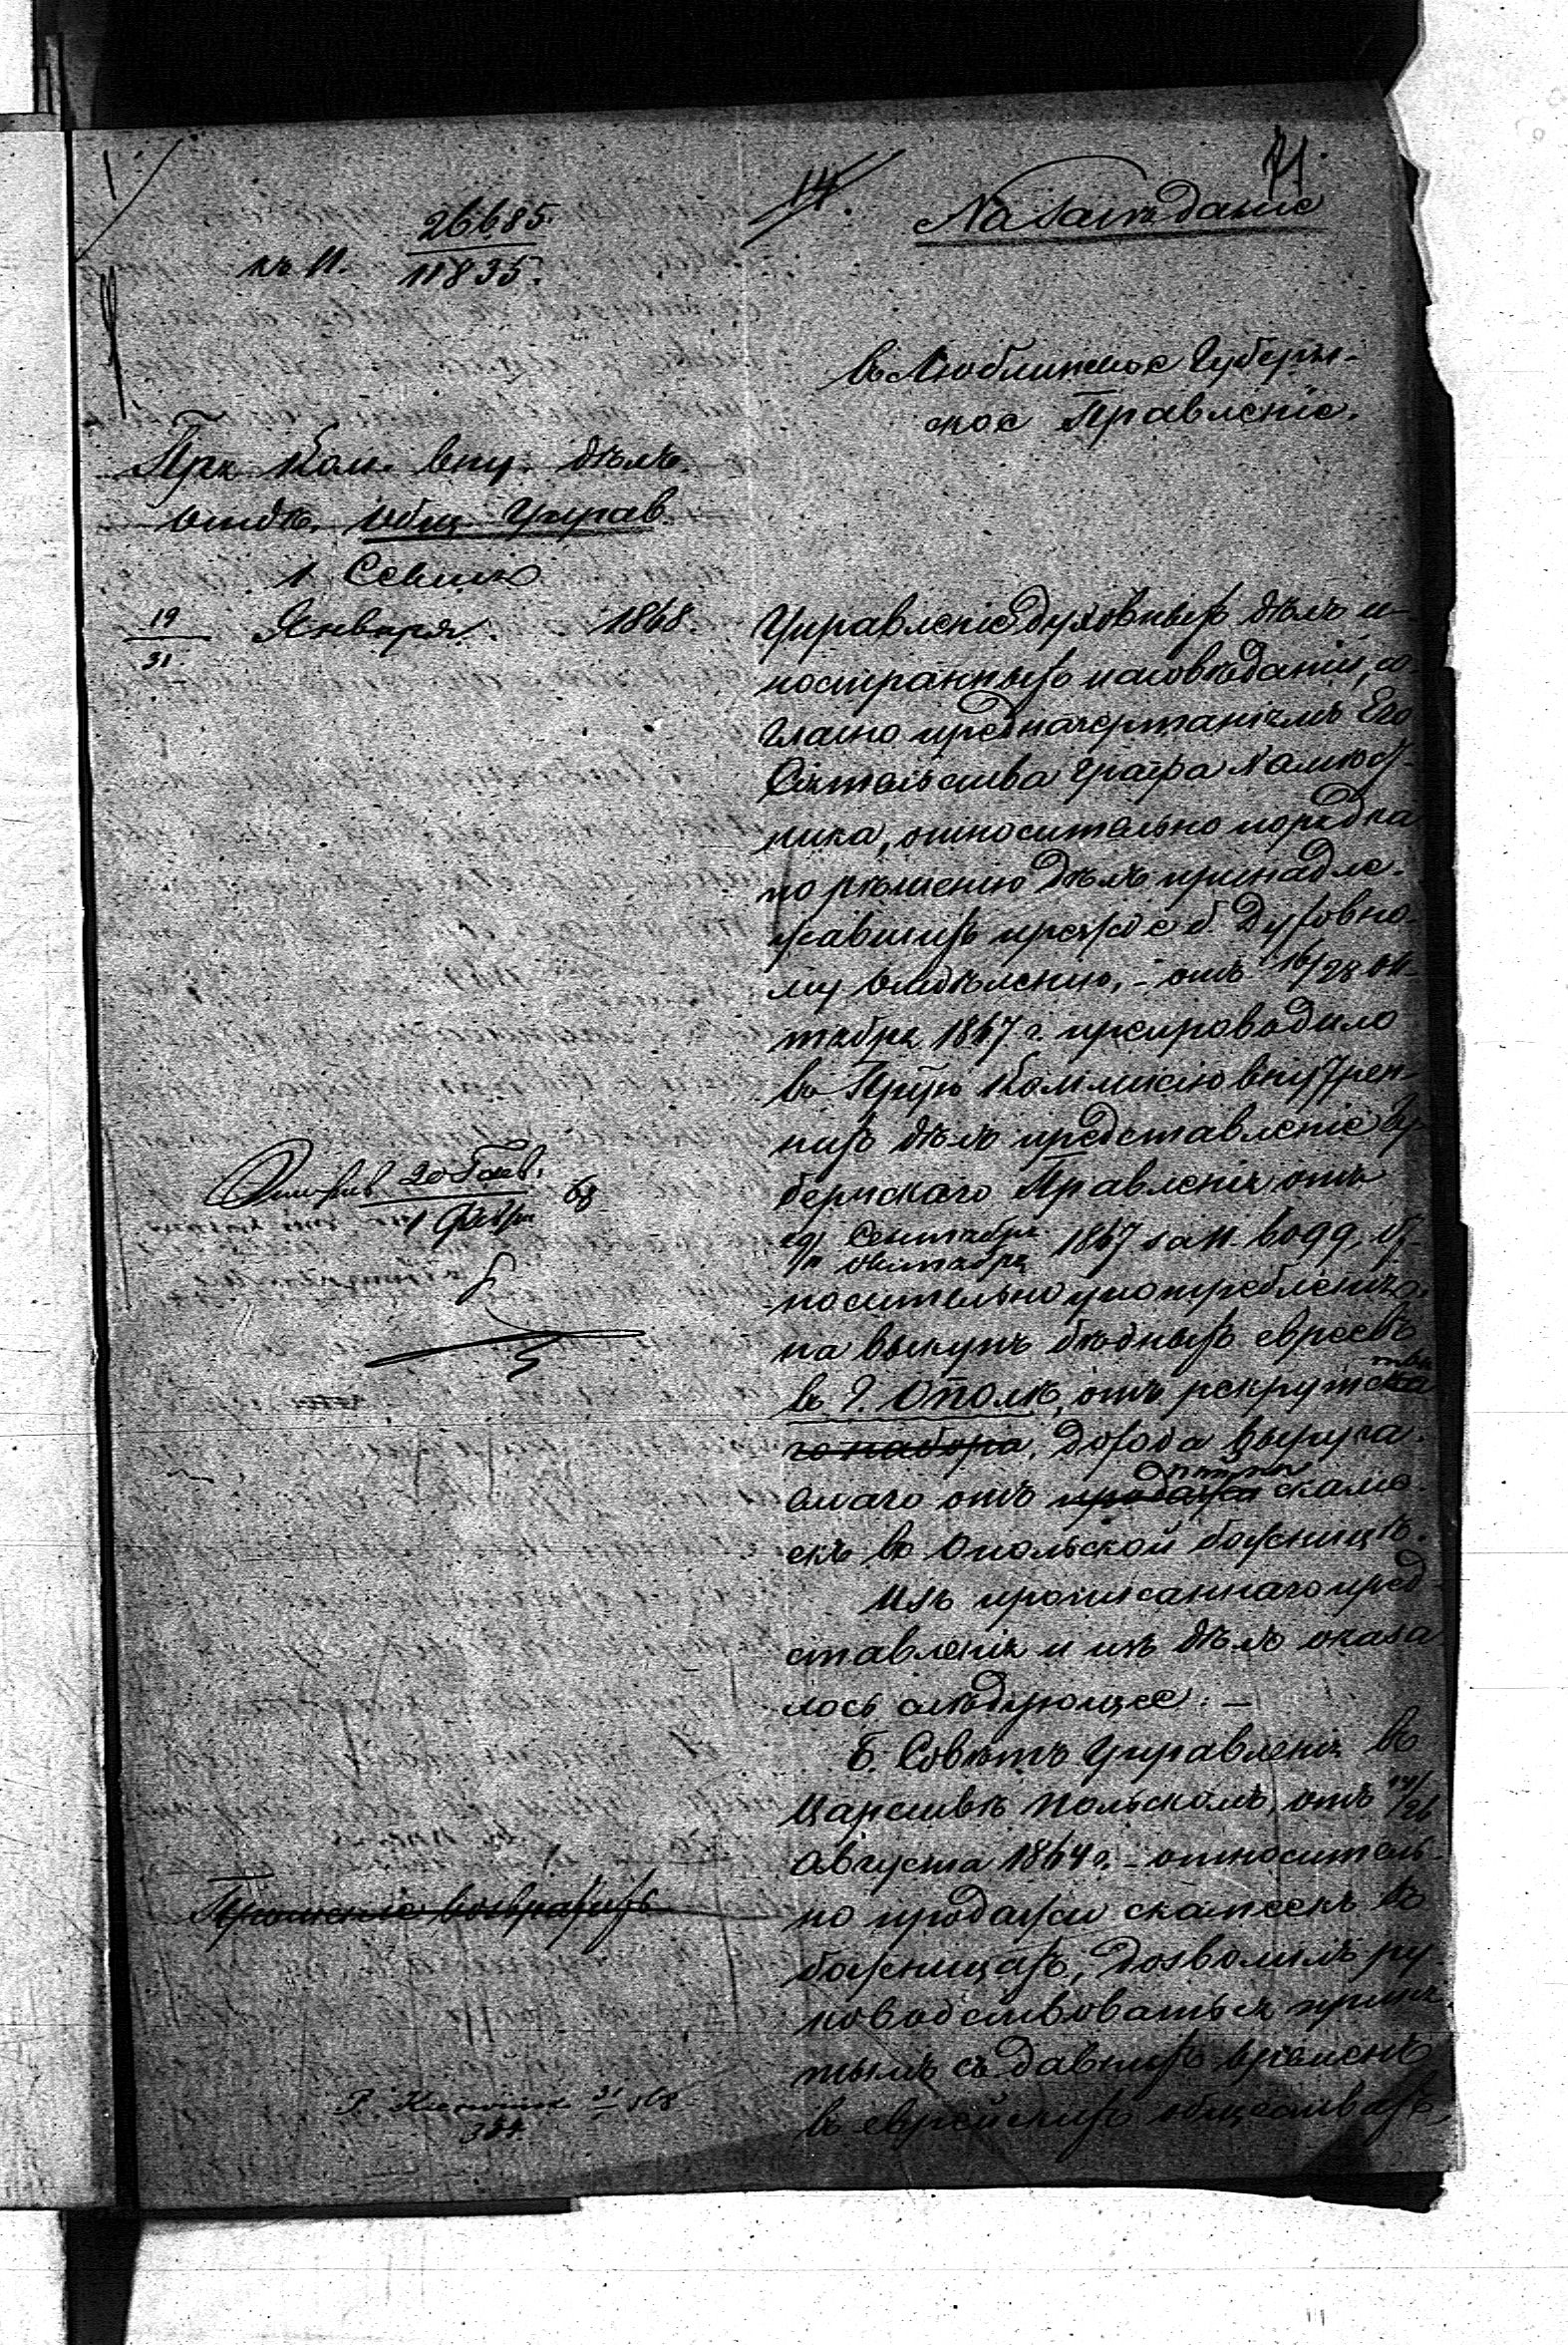 14.
71
26685.
къ N. 11835.
На засѣданіе
въ Люблинское Губерн-
ское Правленіе.
Пра. Ком. вну. дѣлъ.
Отдѣ. Общ. Управ.
1 Секція
19/31 Января 1868.
Управленіе духовныхъ дѣлъ и-
ностранныхъ исповѣданій, со-
гласно предначертаніямъ Его
Сіятельства Графа Намѣст-
ника, относительно порядка
по рѣшенію дѣлъ принадле-
жавшихъ прежде б. Духовно-
му Отдѣленію, - отъ 16/28 Ок-
тября 1867 г. препроводило
въ Прву Коммисію внутрен-
нихъ дѣлъ представленіе Гу-
бернскаго Правленія отъ
29 Сентября/11 Октября 1867 за N. 6099, от-
носительно употребленія
на выкупъ бѣдныхъ евреевъ
въ г. Ополѣ, отъ рекрутска
го набора, дохода выруча-
емаго отъ продажи скаме-
екъ въ Опольской божницѣ.
Изъ прописаннаго пред-
ставленія и изъ дѣлъ оказа-
лось слѣдующее: —
Б. Совѣтъ Управленія въ
Царствѣ Польскомъ, отъ 14/26
Августа 1864 г. - относитель-
но продажи скамеекъ въ
божницахъ, дозволилъ ру-
ководствоваться приня-
тымъ съ давнихъ временъ
въ еврейскихъ обществахъ,
20 Генв./1 Февр. 68